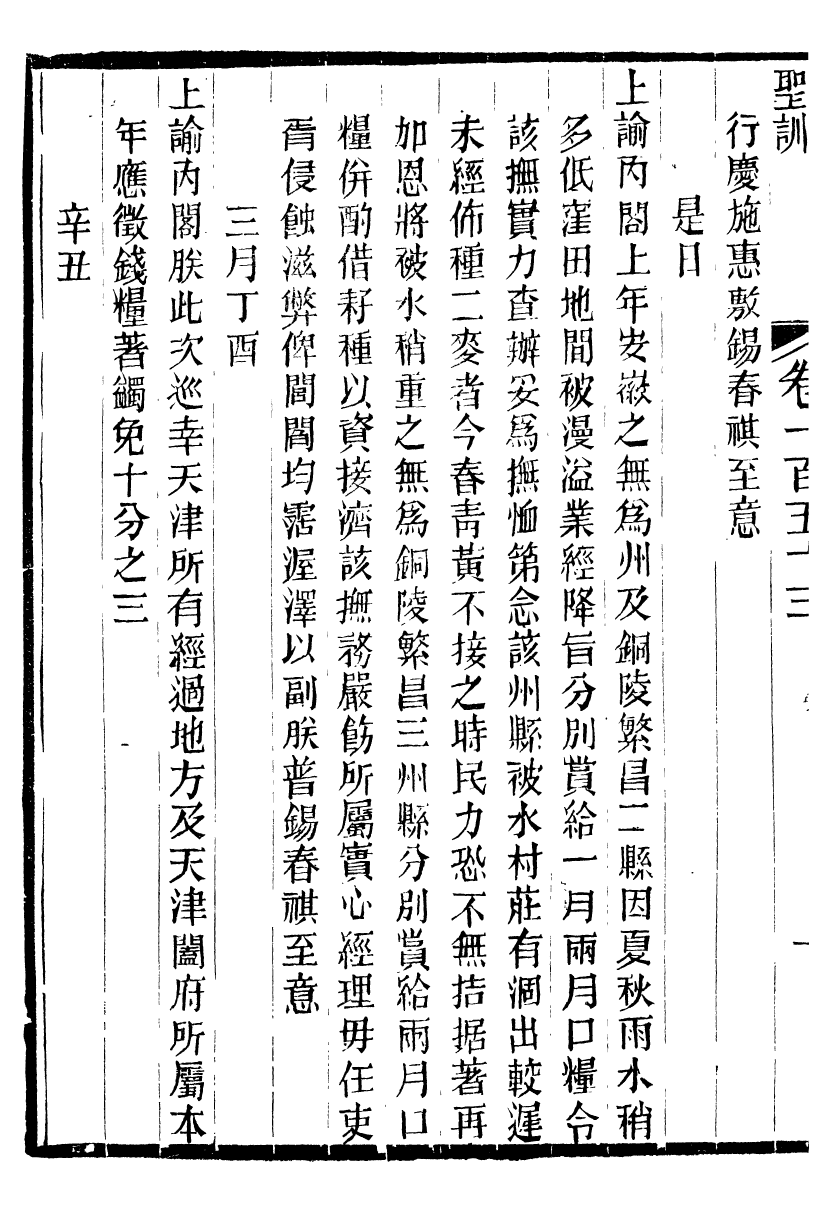 聖訓　卷一百五十三
行慶施惠敷錫春祺至意
是日
上諭內閣上年安徽之無為州及銅陵繁昌二縣因夏秋雨水稍
多低窪田地間被漫溢業經降旨分別賞給一月兩月口糧令
該撫實力查辦妥為撫恤第念該州縣被水村莊有涸出較遲
未經佈種二麥者今春青黃不接之時民力恐不無拮据著再
加恩將被水稍重之無為銅陵繁昌三州縣分別賞給兩月口
糧併酌借耔種以資接濟該撫務嚴飭所屬實心經理毋任吏
胥侵蝕滋弊俾閭閻均霑渥澤以副朕普錫春祺至意
三月丁酉
上諭內閣朕此次巡幸天津所有經過地方及天津闔府所屬本
年應徵錢糧著蠲免十分之三
辛丑